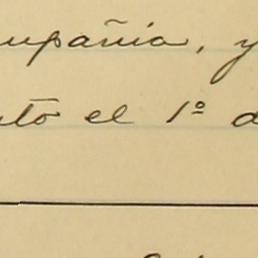 mpañia, y
nto el 1º d